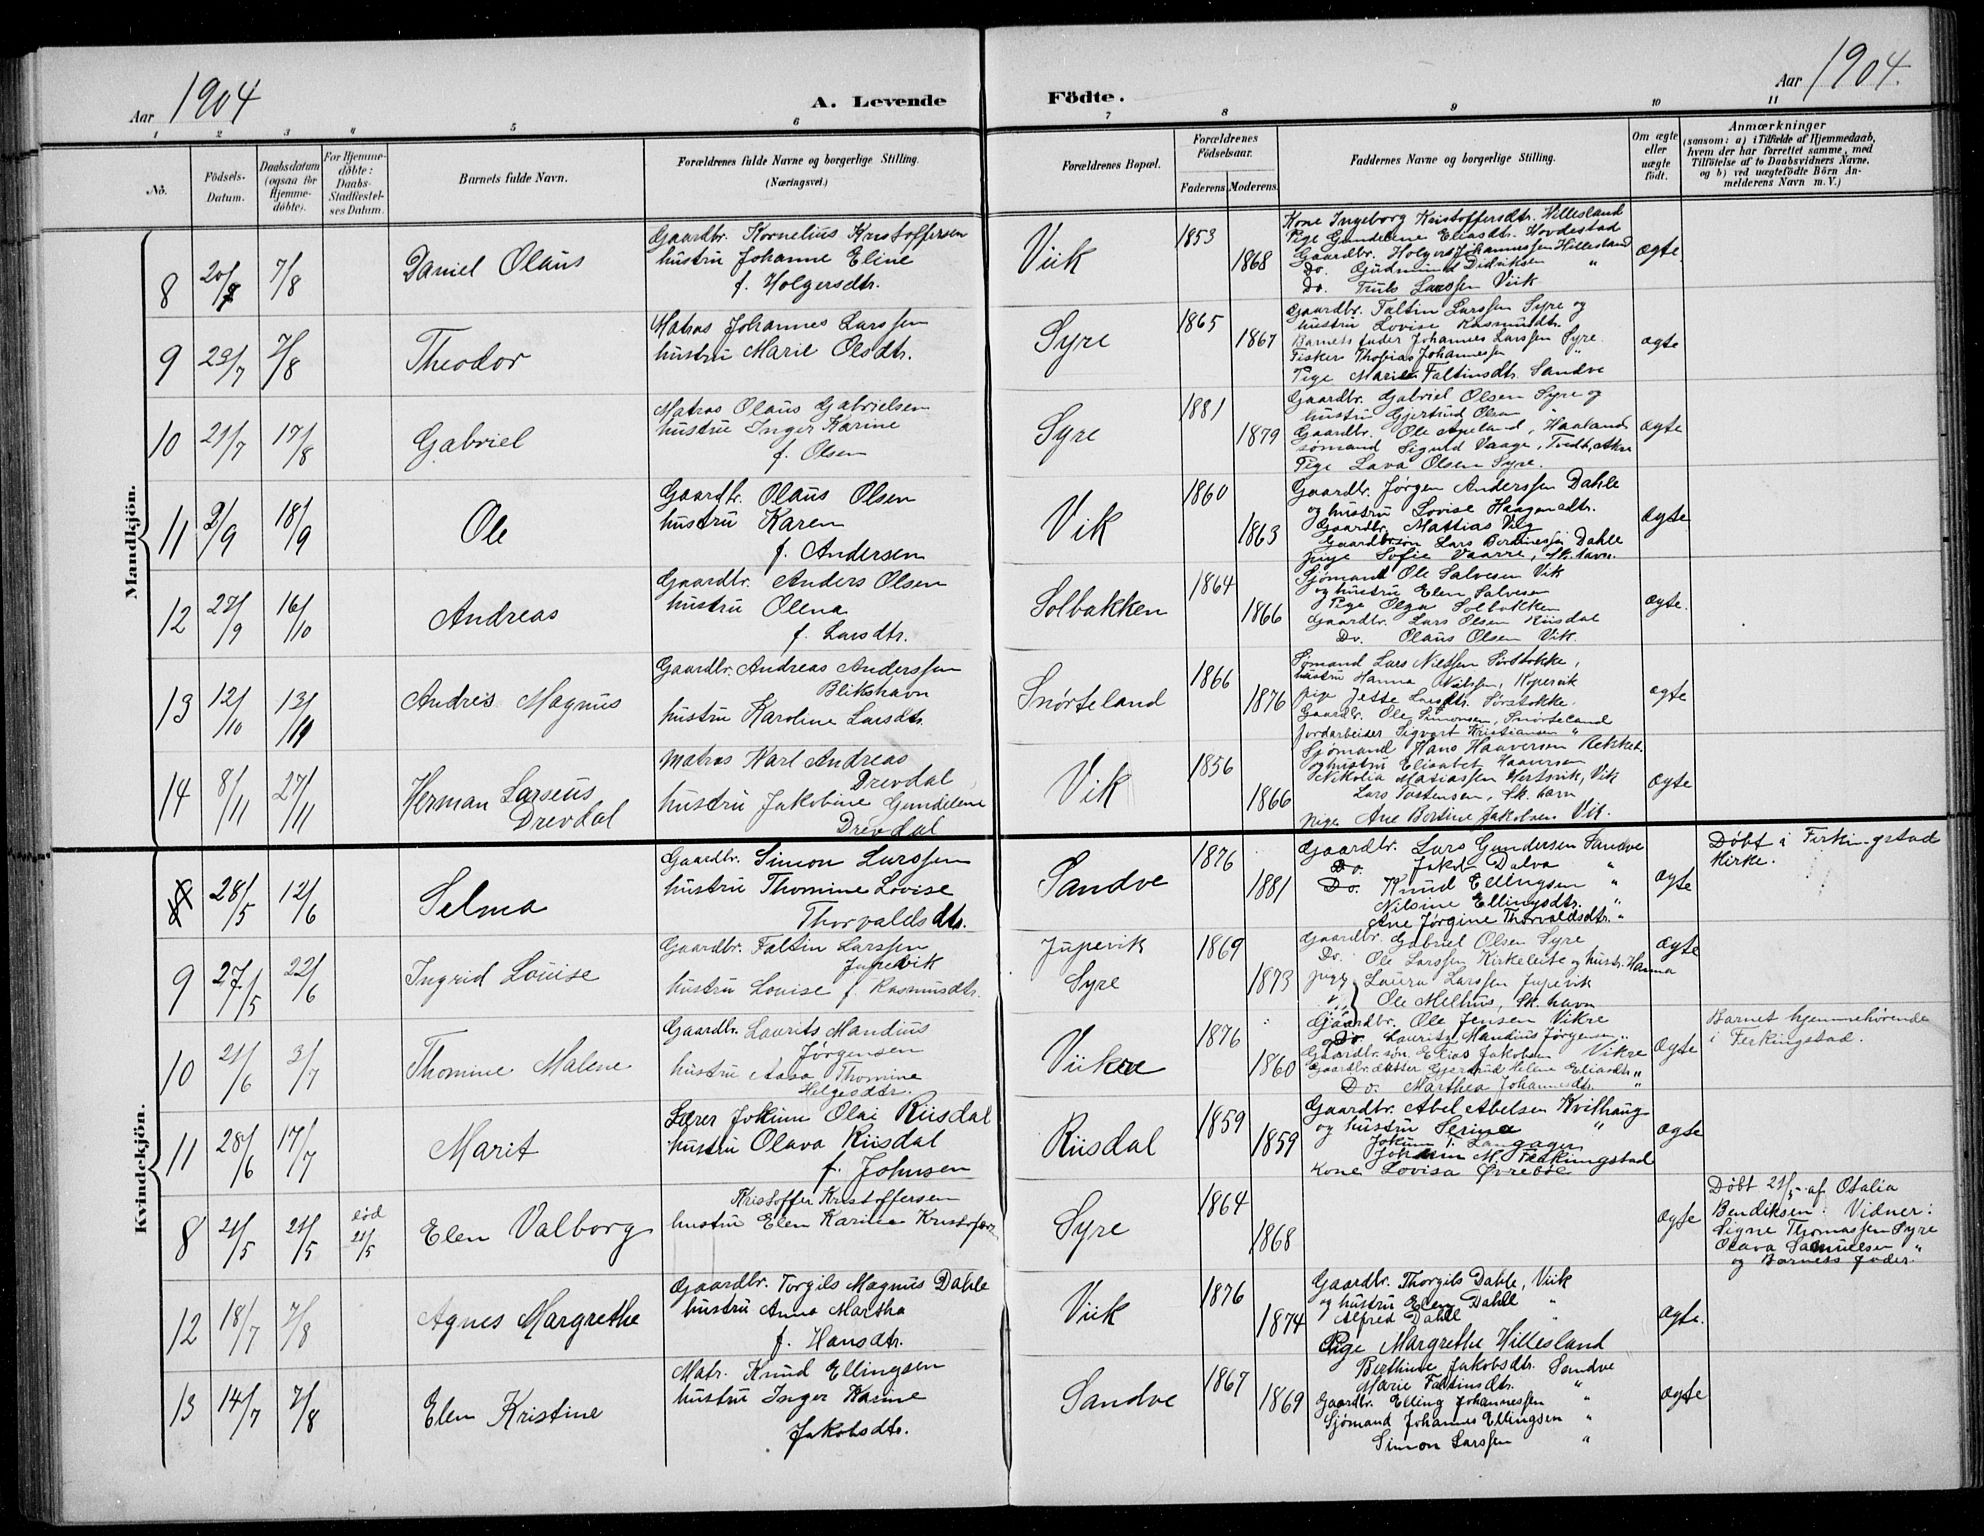 Aar 1904
A. Levende Födte.
Aar 1904.
1 2 3 4 5 6 7 8 9 10 11
No.
Födsels-Datum.
Daabsdatum (ogsaa for Hjemme-döbte).
For Hjemme-döbte: Daabs-Stadfæstel-ses Datum.
Barnets fulde Navn.
Forældrenes fulde Navne og borgerlige Stilling.
(Næringsvei.)
Forældrenes Bopæl.
Forældrenes Födselsaar.
Faderens. Moderens.
Faddernes Navne og borgerlige Stilling.
Om ægte eller uægte födt.
Anmærkninger
(saasom: a) i Tilfælde af Hjemmedaab, hvem der har forrettet samme, med Tilföielse af to Daabsvidners Navne. og b) ved uægtefödte Börn An-melderens Navn m. V.)
Mandkjön.
8 20/7 7/8 Daniel Olaus
Gaardbr. Kornelius Kristoffersen
hustru Johanne Eline
f. Holgersdtr.
Viik 1853 1868
Kone Ingeborg Kristoffersdtr. Hillesland
Pige Gundelene Eliasdtr. Hovdestad
Gaardbr. Holgers Johannessen Hillesland
Do. Gudmund Didriksen "
Do. Truls Larssen Viik
ægte.
9 23/7 7/8 Theodor
Matros Johannes Larssen
hustru Marie Olsdtr.
Syre 1865 1867
Gaardbr. Faltin Larssen Syre og
hustru Lovise Rasmusdtr.
Barnets fader Johannes Larssen Syre.
Fisker Thobias Johannessen "
Pige Marie Faltinsdtr. Sandve
ægte
10 21/7 17/8 Gabriel
Matros Olaus Gabrielsen
hustru Inger Karine
f. Olsen
Syre 1881 1879
Gaardbr. Gabriel Olsen Syre og
hustru Gjertrud Olsen
Gaardbr. Ole Apeland, Haaland
sømand Sigurd Vaage, Tvedt, Akre
Pige Lava Olsen Syre.
ægte
11 2/9 18/9 Ole
Gaardbr. Olaus Olsen
hustru Karen
f. Andersen
Vik 1860 1863
Gaardbr. Jørgen Anderssen Dahle
og hustru Lovise Haagensdtr.
Gaardbr. Mattias Vik
Gaardbrsøn Lars Dahle
pige Sofie Vaarre, Sk. havn.
ægte
12 27/9 16/10 Andreas
Gaardbr. Anders Olsen
hustru Olena
f. Larsdtr.
Solbakken 1864 1866
Sjømand Ole Salvesen Vik
og hustru Elen Salvesen
Pige Olga Solbakken
Gaardbr. Lars Olsen Riisdal
Do. Olaus Olsen Vik.
ægte.
13 12/10 13/11 Andres Magnus
Gaardbr. Andreas Anderssen
Blikshavn
hustru Karoline Larsdtr.
Snørteland 1866 1876
Sømand Lars Nilssen Sørstokke,
hustru Hanna Nilssen, Kopervik
pige Jette Larsdtr. Sørstokke.
Gaardbr. Ole Simonsen, Snørteland
Jordarbeider Sigvart Kristiansen "
ægte
14 8/11 27/11 Herman Larseus
Drevdal
Matros Karl Andreas
Drevdal
hustru Jakobine Gundelene
Drevdal
Vik 1856 1866
Sjømand Hans Haaversen
og hustru Elisabet Haaversen
Nikolia Matiassen Vik
Lars Tostensen, Sk. havn
Pige Ane Bertine Jakobsen Vik.
ægte
Kvindekjön.
8 28/5 12/6 Selma
Gaardbr. Simon Larssen
hustru Thomine Lovise
Thorvaldsdtr.
Sandve 1876 1881
Gaardbr. Lars Gundersen Sandve
Do. Jakob Dalva "
Do. Knud Ellingsen "
Nilsine Ellingsdtr. "
Ane Jørgine Thorvaldsdtr. "
ægte
Döbt i Ferkingstad
Kirke.
9 27/5 22/6 Ingrid Louise
Gaardbr. Faltin Larssen
Jupevik
hustru Louise f. Rasmusdtr.
Jupevik
Syre
1869 1873
Gaardbr. Gabriel Olsen Syre
Do. Ole Larssen Kirkeleite og hustr. Hanna
pige Laura Larssen Jupevik
Ole Melhus, Sk. havn
ægte
10 21/6 3/7 Thomine Malene
Gaardbr. Laurits Mandius
Jørgensen
hustru Aasa Thomine
Helgesdtr.
Viikre 1876 1860
Gaardbr. Ole Jensen Vikre
Do. Lauritz Mandius Jørgensen "
Gaardbr. søn Elias Jakobsen Vikre
Gaardbr. datter Gjertrud Helene Eliasdtr "
Do. Marthea Johannesdtr. "
ægte
Barnet hjemmehørende
i Ferkingstad.
11 28/6 17/7 Marit
Lærer Jokum Olai Riisdal
hustru Olava Riisdal
f. Johnsen
Riisdal 1859 1859
Gaardbr. Abel Abelsen Kvilhaug
og hustru Serina "
Jokum T. Langager
M. Ferkingstad
Kone Lovisa Øvrebøe
ægte
8 21/5 21/5 død 21/5 Elen Valborg
Kristoffer Kristoffersen
hustru Elen Karine Kristofers
Syre 1864 1868
ægte
Döbt 21/5 af Otalia
Bendiksen: Vidner:
Signe Thomassen Syre
Olava Samuelsen "
og Barnets fader.
12 18/7 7/8 Agnes Margrethe
Gaardbr. Torgils Magnus Dahle
hustru Anna Martha
f. Hansdtr.
Viik 1876 1874
Gaardbr. Thorgils Dahle, Viik
og hustru Elen Dahle "
Alfred Dahle "
Pige Margrethe Hillesland
ægte.
13 14/7 7/8 Elen Kristine
Matr. Knud Ellingsen
hustru Inger Karine
Jakobsdtr.
Sandve 1867 1869
Berthine Jakobsdtr. Sandve
Marie Faltinsdtr. "
Gaardbr. Elling Johannessen "
Sjømand Johannes Ellingsen "
Simon Larssen "
ægte